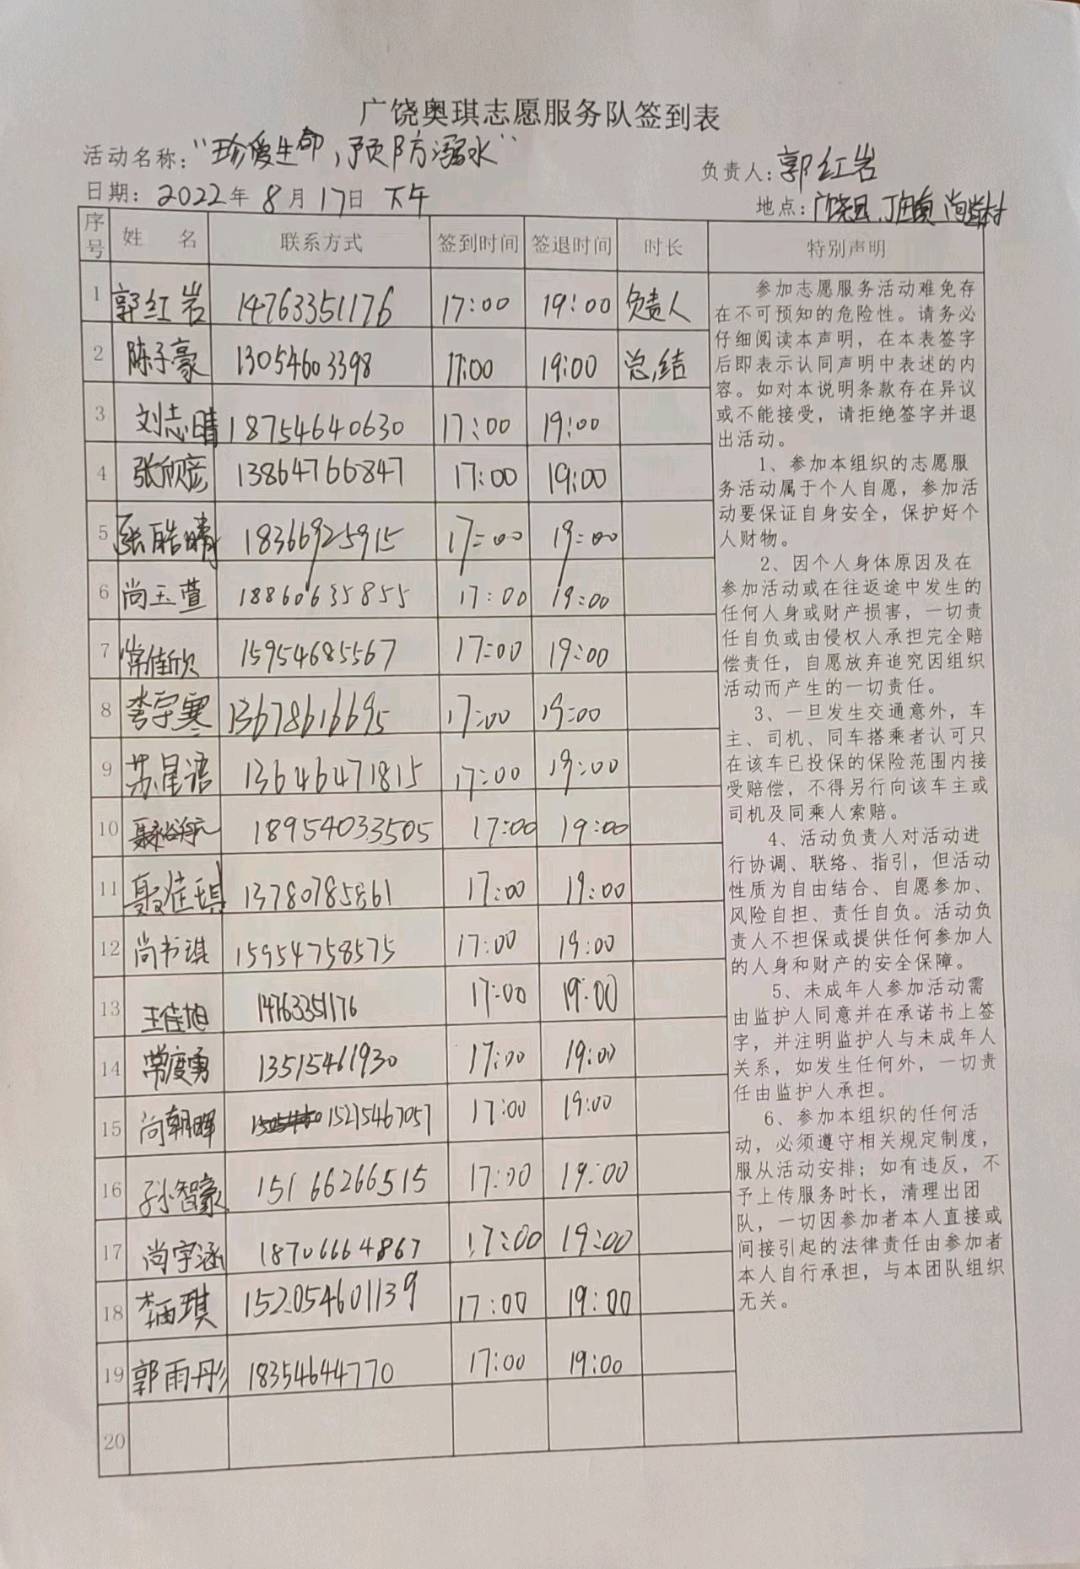 广饶奥琪志愿服务队签到表
活动名称：“珍爱生命，预防溺水”
负责人：郭红岩
日期：2022年8月17日 下午
地点：广饶县 丁庄镇 尚道村
序号 姓 名 联系方式 签到时间 签退时间 时长 特别声明
1 郭红岩 14763351176 17:00 19:00 负责人
2 陈子豪 13054603398 17:00 19:00 总结
3 刘志晴 18754640630 17:00 19:00
4 张欣彦 13864766847 17:00 19:00
5 张皓晴 18366925915 17:00 19:00
6 尚玉萱 18860635855 17:00 19:00
7 常佳欣 15954685567 17:00 19:00
8 李宇寒 13678616695 17:00 19:00
9 苏星语 13646471815 17:00 19:00
10 18954033505 17:00 19:00
11 聂佳琪 13780785861 17:00 19:00
12 尚书琪 15954758575 17:00 19:00
13 王佳旭 14763351176 17:00 19:00
14 常度勇 13515461930 17:00 19:00
15 尚朝晖 15275467057 17:00 19:00
16 孙智豪 15166266515 17:00 19:00
17 尚宇涵 18706664867 17:00 19:00
18 152054601139 17:00 19:00
19 郭雨彤 18354644770 17:00 19:00
20
参加志愿服务活动难免存
在不可预知的危险性。请务必
仔细阅读本声明，在本表签字
后即表示认同声明中表述的内
容。如对本说明条款存在异议
或不能接受，请拒绝签字并退
出活动。
1、参加本组织的志愿服
务活动属于个人自愿，参加活
动要保证自身安全，保护好个
人财物。
2、因个人身体原因及在
参加活动或在往返途中发生的
任何人身或财产损害，一切责
任自负或由侵权人承担完全赔
偿责任，自愿放弃追究因组织
活动而产生的一切责任。
3、一旦发生交通意外，车
主、司机、同车搭乘者认可只
在该车已投保的保险范围内接
受赔偿，不得另行向该车主或
司机及同乘人索赔。
4、活动负责人对活动进
行协调、联络、指引，但活动
性质为自由结合、自愿参加、
风险自担、责任自负。活动负
责人不担保或提供任何参加人
的人身和财产的安全保障。
5、未成年人参加活动需
由监护人同意并在承诺书上签
字，并注明监护人与未成年人
关系，如发生任何外，一切责
任由监护人承担。
6、参加本组织的任何活
动，必须遵守相关规定制度，
服从活动安排；如有违反，不
予上传服务时长，清理出团
队，一切因参加者本人直接或
间接引起的法律责任由参加者
本人自行承担，与本团队组织
无关。